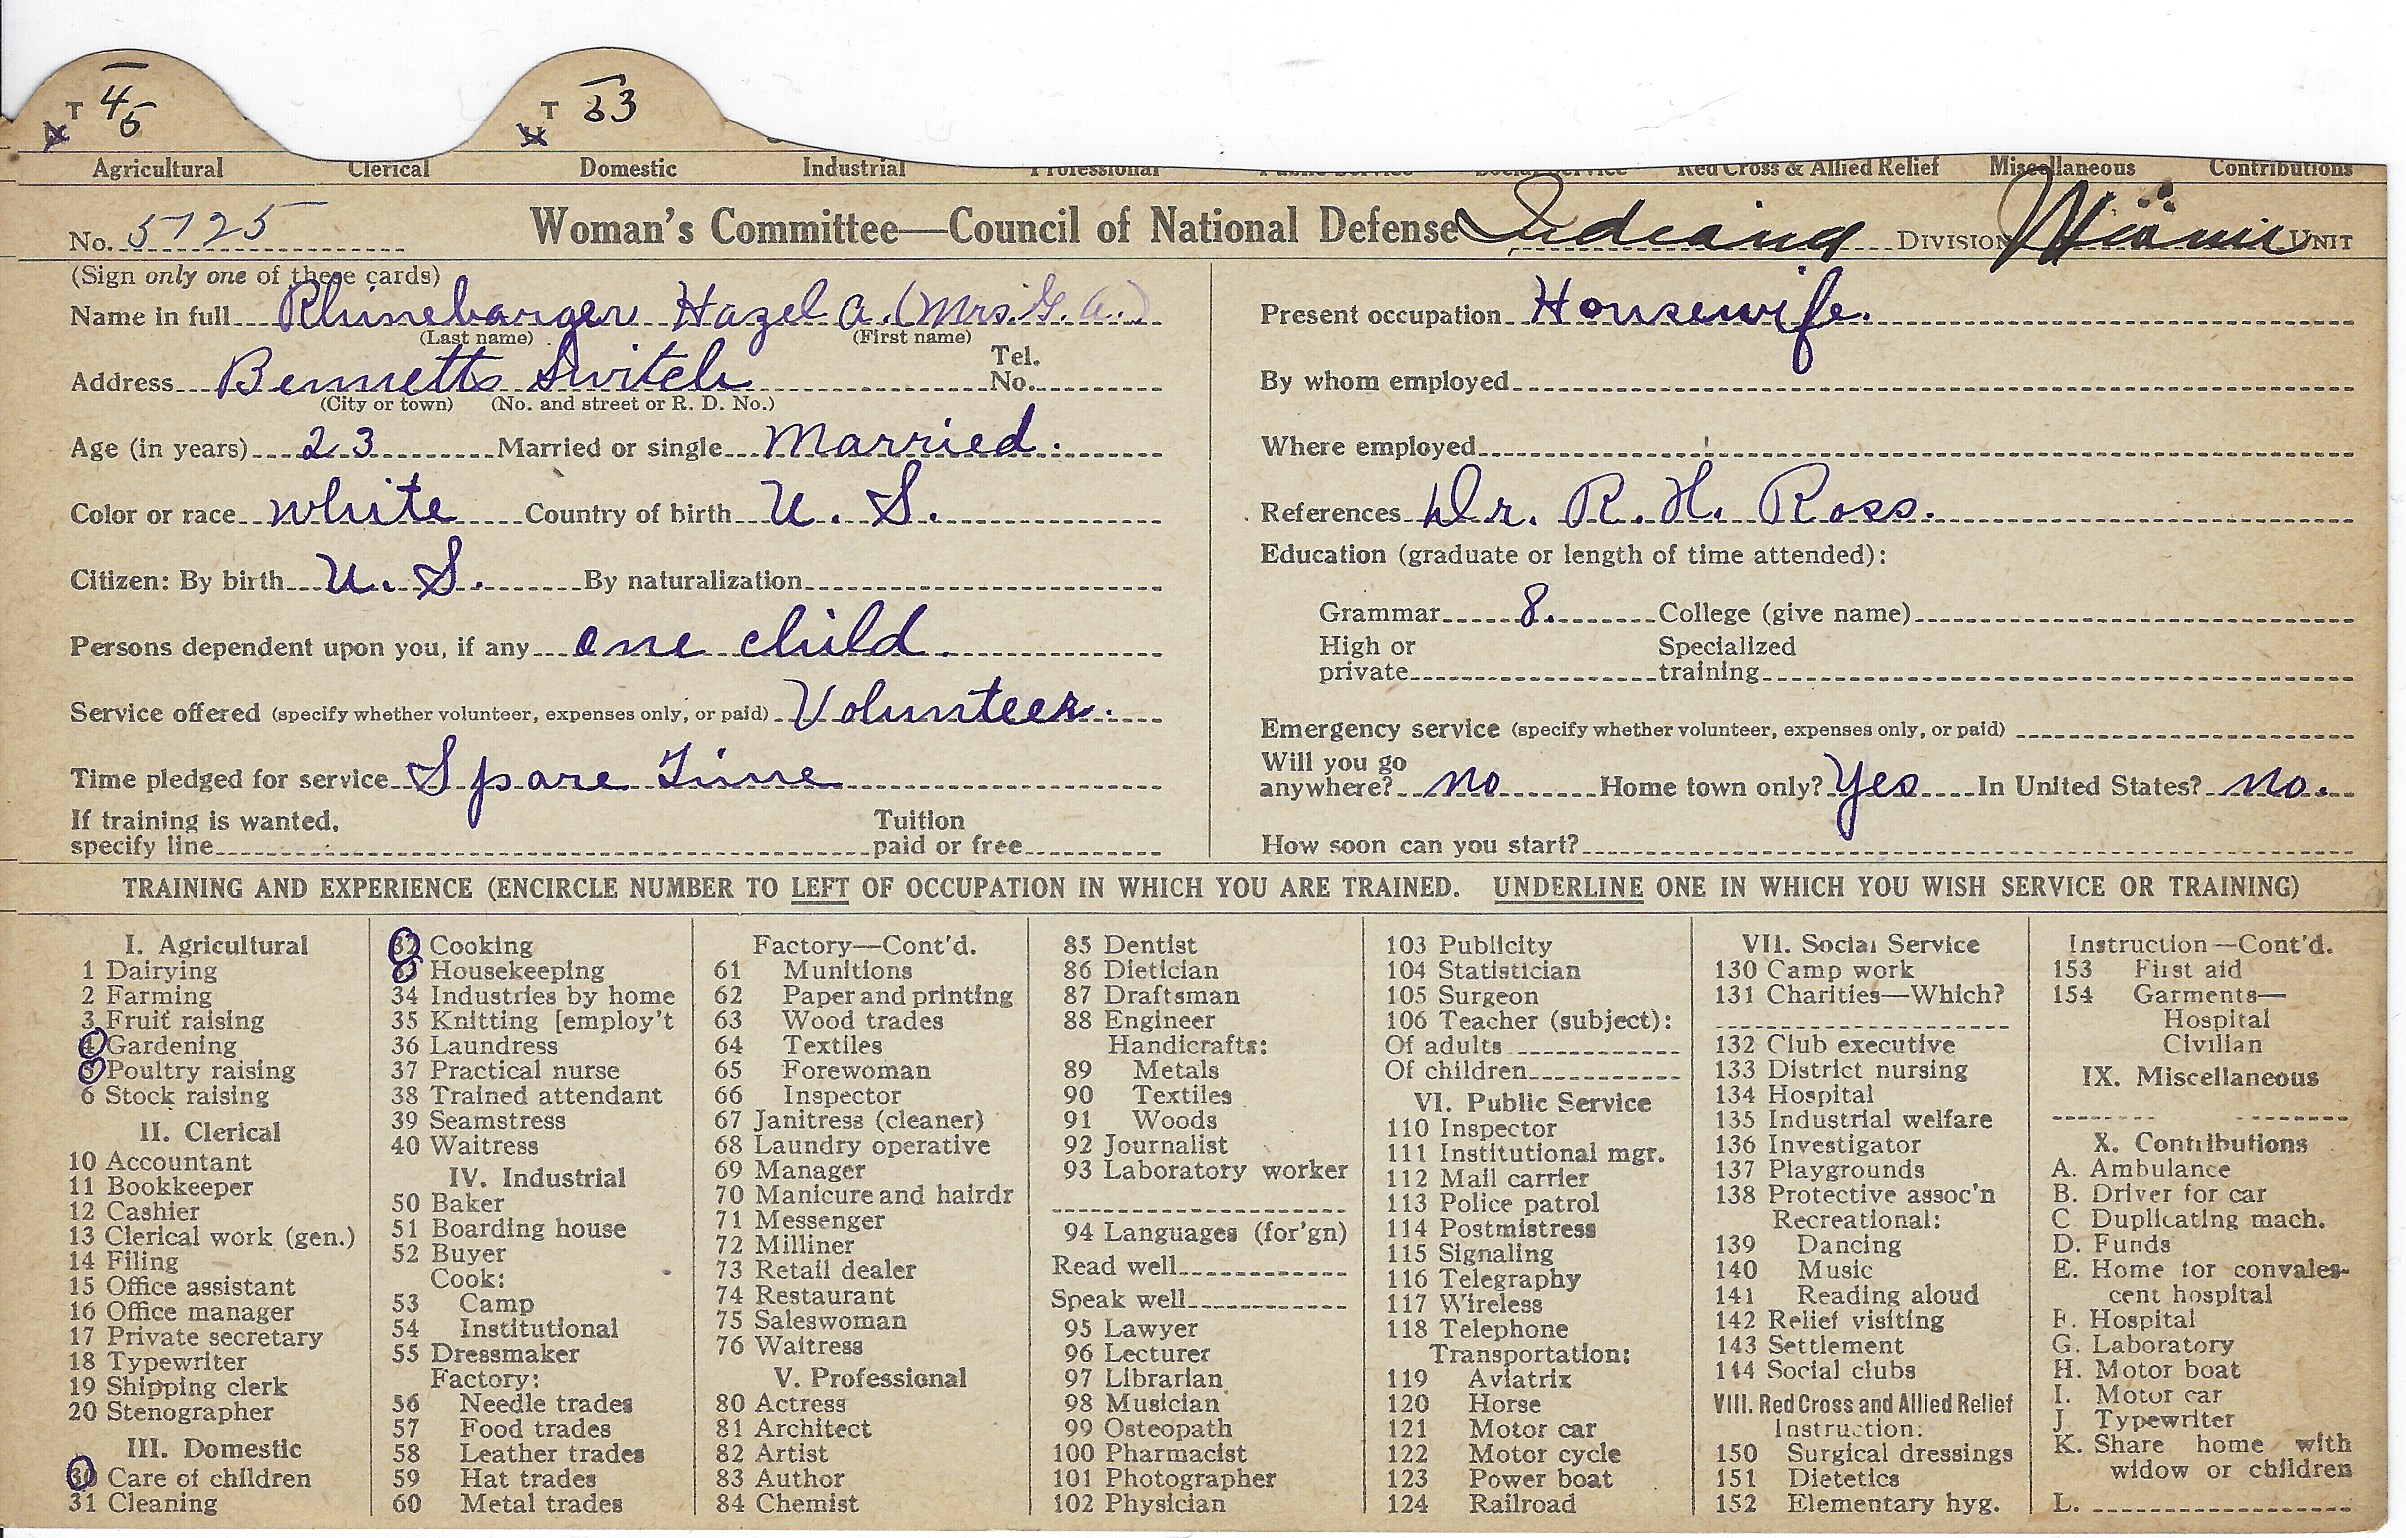 T 4 5
T 33
Agricultural Clerical Domestic Industrial Professional Public Service Social Service Red Cross & Allied Relief Miscellaneous Contributions
No. 5725 Woman's Committee—Council of National Defense Indiana DIVISION Miami UNIT
(Sign only one of these cards)
Name in full Rhinebarger Hazel A. (Mrs. G. A.)
(Last name) (First name)
Address Bennetts Switch Tel. No.
(City or town) (No. and street or R. D. No.)
Age (in years) 23 Married or single Married.
Color or race white Country of birth U. S.
Citizen: By birth U. S. By naturalization
Persons dependent upon you, if any one child.
Service offered (specify whether volunteer, expenses only, or paid) Volunteer.
Time pledged for service Spare Time
If training is wanted, specify line Tuition paid or free
Present occupation Housewife.
By whom employed
Where employed
References Dr. R. H. Ross.
Education (graduate or length of time attended):
Grammar 8. College (give name)
High or private Specialized training
Emergency service (specify whether volunteer, expenses only, or paid)
Will you go anywhere? no Home town only? Yes In United States? no.
How soon can you start?
TRAINING AND EXPERIENCE (ENCIRCLE NUMBER TO LEFT OF OCCUPATION IN WHICH YOU ARE TRAINED. UNDERLINE ONE IN WHICH YOU WISH SERVICE OR TRAINING)
I. Agricultural
1 Dairying
2 Farming
3 Fruit raising
4 Gardening
5 Poultry raising
6 Stock raising
II. Clerical
10 Accountant
11 Bookkeeper
12 Cashier
13 Clerical work (gen.)
14 Filing
15 Office assistant
16 Office manager
17 Private secretary
18 Typewriter
19 Shipping clerk
20 Stenographer
III. Domestic
30 Care of children
31 Cleaning
32 Cooking
33 Housekeeping
34 Industries by home
35 Knitting [employ't
36 Laundress
37 Practical nurse
38 Trained attendant
39 Seamstress
40 Waitress
IV. Industrial
50 Baker
51 Boarding house
52 Buyer
Cook:
53 Camp
54 Institutional
55 Dressmaker
Factory:
56 Needle trades
57 Food trades
58 Leather trades
59 Hat trades
60 Metal trades
Factory—Cont'd.
61 Munitions
62 Paper and printing
63 Wood trades
64 Textiles
65 Forewoman
66 Inspector
67 Janitress (cleaner)
68 Laundry operative
69 Manager
70 Manicure and hairdr
71 Messenger
72 Milliner
73 Retail dealer
74 Restaurant
75 Saleswoman
76 Waitress
V. Professional
80 Actress
81 Architect
82 Artist
83 Author
84 Chemist
85 Dentist
86 Dietician
87 Draftsman
88 Engineer
Handicrafts:
89 Metals
90 Textiles
91 Woods
92 Journalist
93 Laboratory worker
94 Languages (for'gn)
Read well
Speak well
95 Lawyer
96 Lecturer
97 Librarian
98 Musician
99 Osteopath
100 Pharmacist
101 Photographer
102 Physician
103 Publicity
104 Statistician
105 Surgeon
106 Teacher (subject):
Of adults
Of children
VI. Public Service
110 Inspector
111 Institutional mgr.
112 Mail carrier
113 Police patrol
114 Postmistress
115 Signaling
116 Telegraphy
117 Wireless
118 Telephone
Transportation:
119 Aviatrix
120 Horse
121 Motor car
122 Motor cycle
123 Power boat
124 Railroad
VII. Social Service
130 Camp work
131 Charities—Which?
132 Club executive
133 District nursing
134 Hospital
135 Industrial welfare
136 Investigator
137 Playgrounds
138 Protective assoc'n
Recreational:
139 Dancing
140 Music
141 Reading aloud
142 Relief visiting
143 Settlement
144 Social clubs
VIII. Red Cross and Allied Relief
Instruction:
150 Surgical dressings
151 Dietetics
152 Elementary hyg.
Instruction—Cont'd.
153 First aid
154 Garments—
Hospital
Civilian
IX. Miscellaneous
X. Contributions
A. Ambulance
B. Driver for car
C Duplicating mach.
D. Funds
E. Home for convales-
cent hospital
F. Hospital
G. Laboratory
H. Motor boat
I. Motor car
J. Typewriter
K. Share home with
widow or children
L.